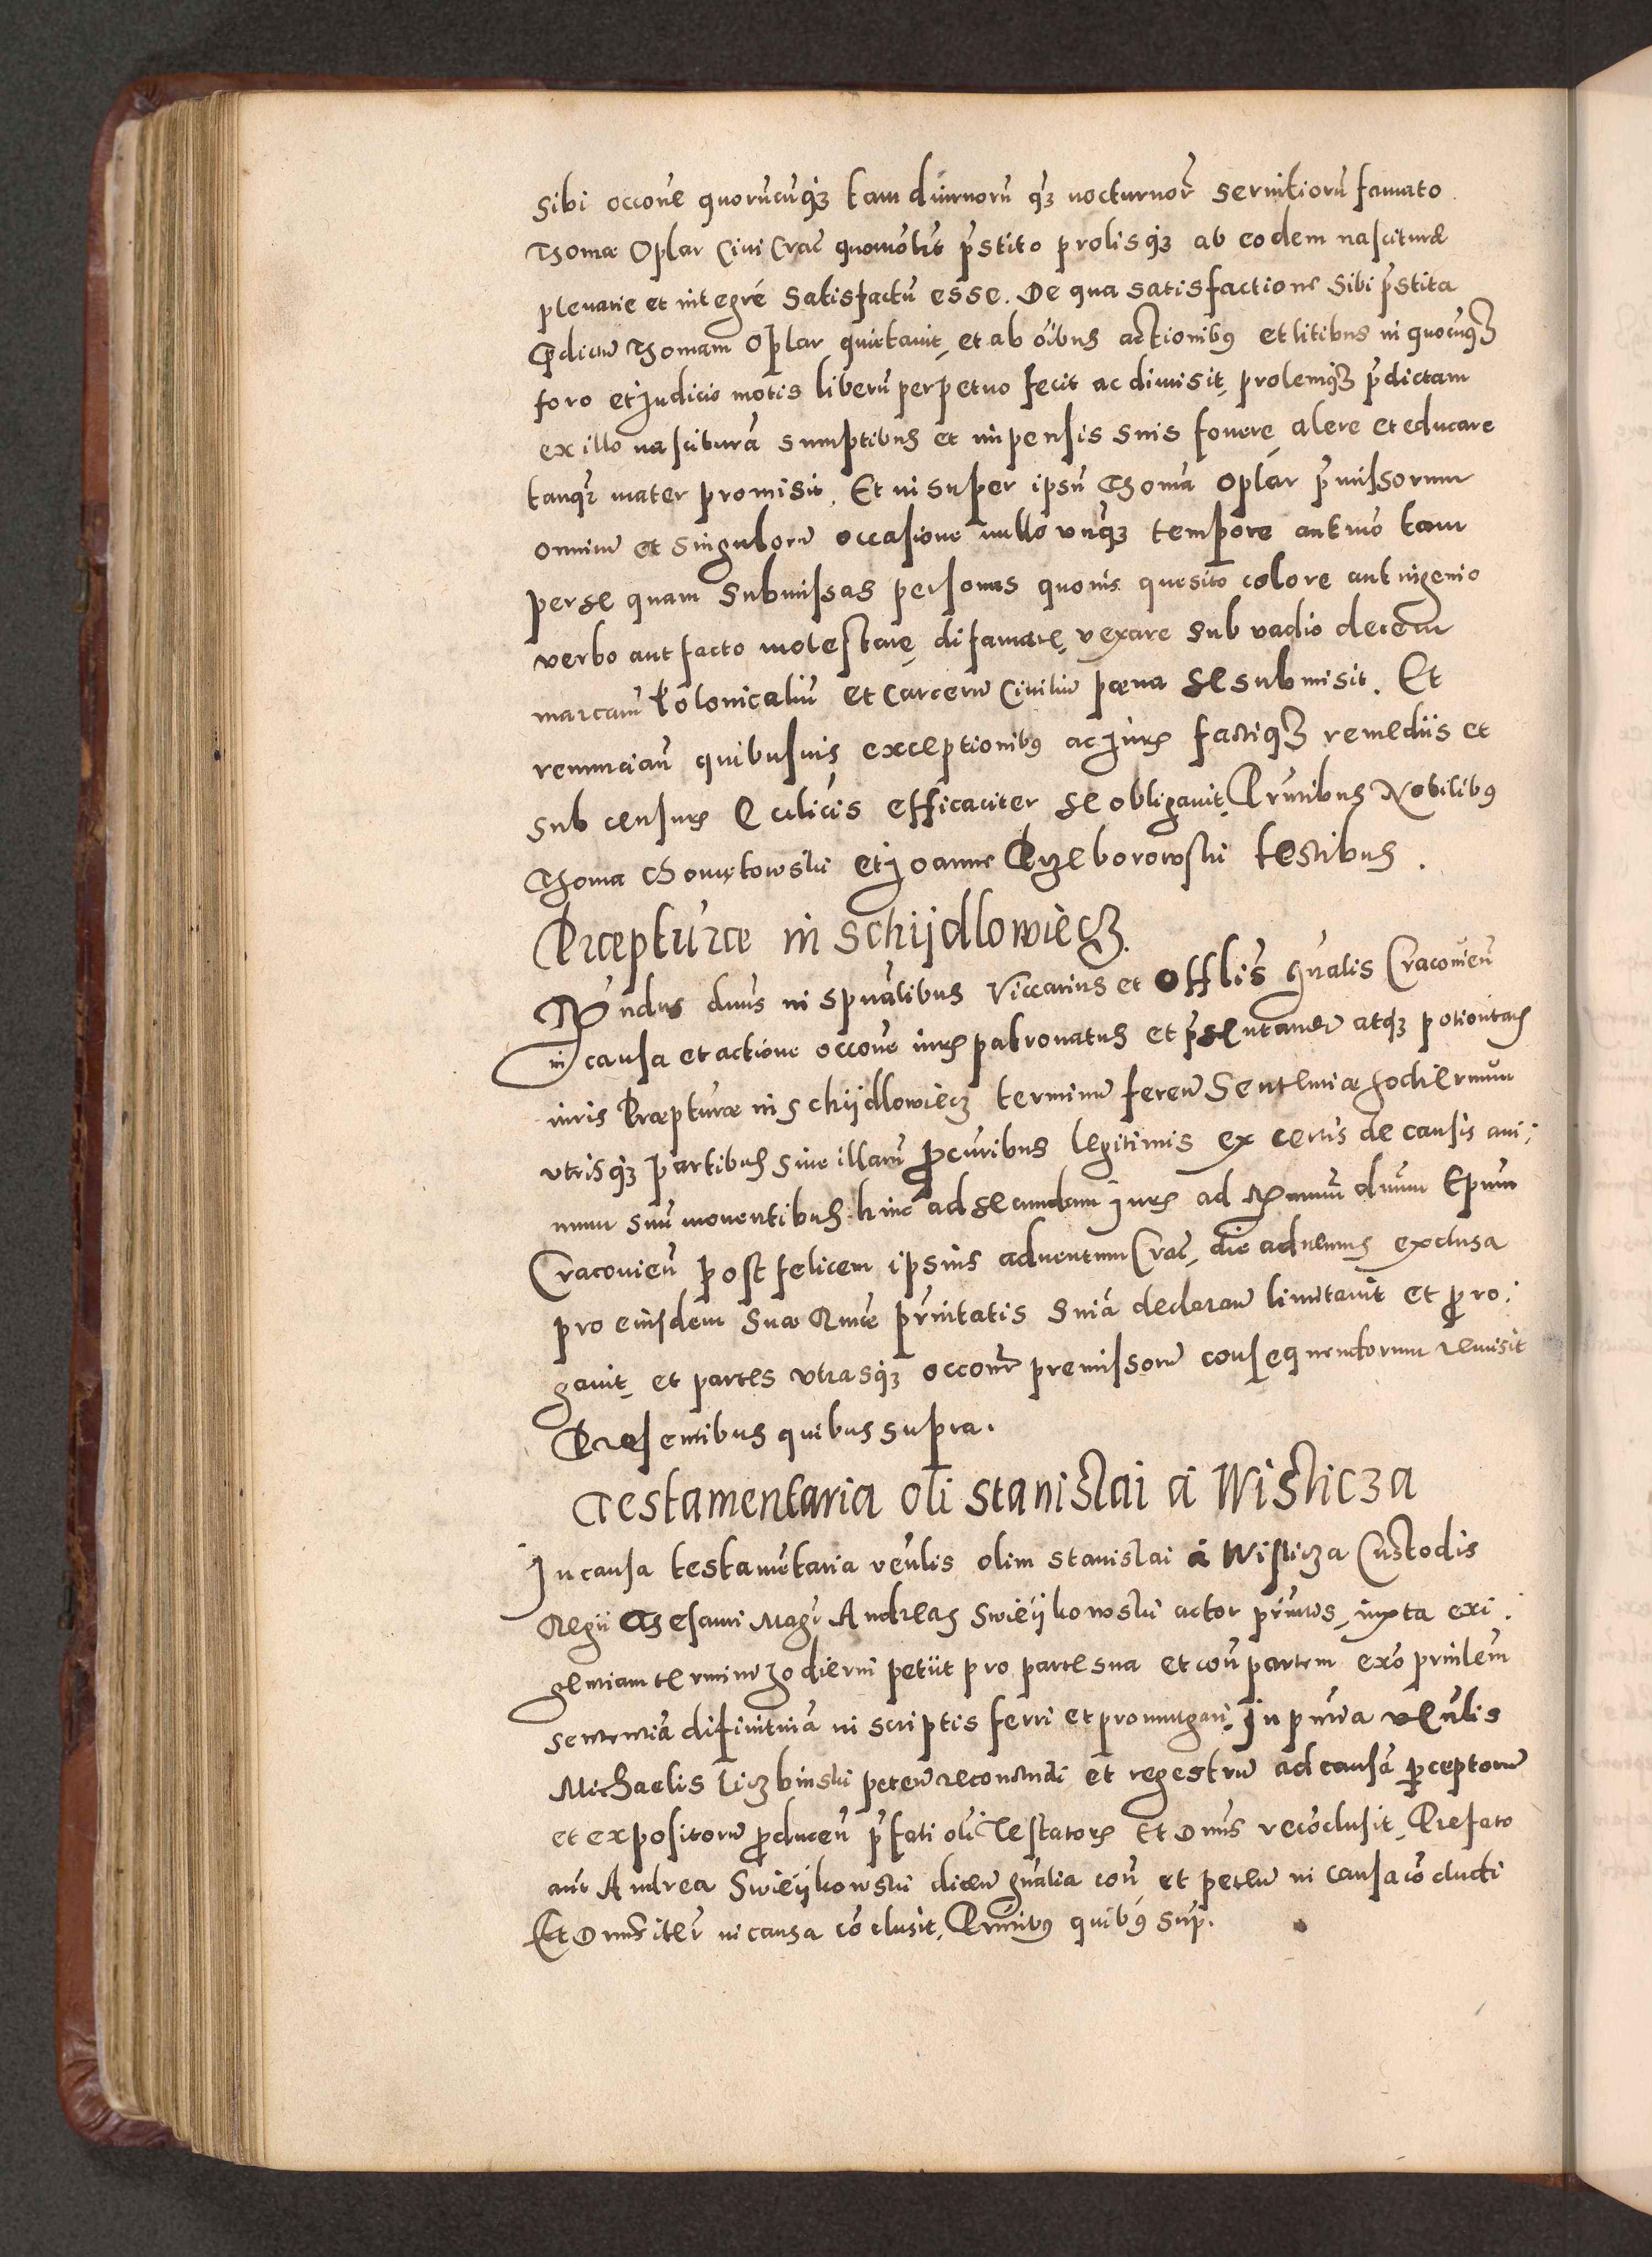 Sibi occone quorucuq3 tam diurnoru q3 nocturnor servitioru famato
Thomæ Oplar Civi Crac quomolit pstito prolisq3 ab eodem nascituræ
plenarie et integre Satisfactu esse. De qua satisfactione sibi pstita
Pdictu Thomam Oplar quietavit, et ab oibus actionibus et litibus in quocuq3
foro et Judicio motis liberu perpetuo fecit ac dimisit, prolemq3 pdictam
ex illo nascitura sumptibus et impensis suis fovere, alere et educare
tanq mater promisit. Et insuper ipsu Thoma Oplar pmissorum
omniu et singuloru occasione nullo unq3 tempore antmo tam
per se quam submissas personas quovis quesito colore aut ingenio
verbo aut facto molestare, difamare, vexare sub vadio decem
marcaru Polonicaliu et carceru Civiliu pœna se submisit. Et
renuncian quibusvis exceptionibus ac Juris factiq3 remediis et
sub censuris Ecclicis efficaciter se obligavit, Pntibus Nobilibus
Thoma Chometowski et Joanne Przeborowski testibus.
Præpturæ in Schijdlowiecz.
Rndus dnus in spualibus Viccarius et Offlis gnalis Cracovien
in causa et actione occone iuris patronatus et psentandi atq3 potioritatis
iuris Præpturæ in Schijdlowiecz terminu feren Sententiæ hodiernum
utrisq3 partibus sive illaru pcuribus legitimis ex certis de causis ani:
mum suu moventibus hinc ad secundam Juris ad Rmum dnum Epum
Cracovien post felicem ipsius adventum Crac, die adventus exclusa
pro eiusdem Suæ Rmæ Pnitatis Snia declaran limitavit et proro:
gavit, et partes utrasq3 occone premissoru consequendorum remisit
Presentibus quibus supra.
Testamentaria oli Stanislai a Wislicza
In causa testametaria venlis olim Stanislai a Wislicza Custodis
Regii Thesauri Magr Andreas Swieijkowski actor prnus, iuxta exi:
gentiam termini hodierni petiit pro parte sua et con partem exo prinlem
sententia difinitiva in scriptis ferri et promulgari, In pntia venlis
Michaelis Liczbinski peten recomendi et regestru ad causa perceptoru
et expositoru producen pfati oli Testatoris Et Dnus recoclusit, Prefato
aut Andrea Swieijkowski dicen gnalia con, et peten in causa co cludi
Et Dnus iter in causa co clusit, Pntibus quibus sup.